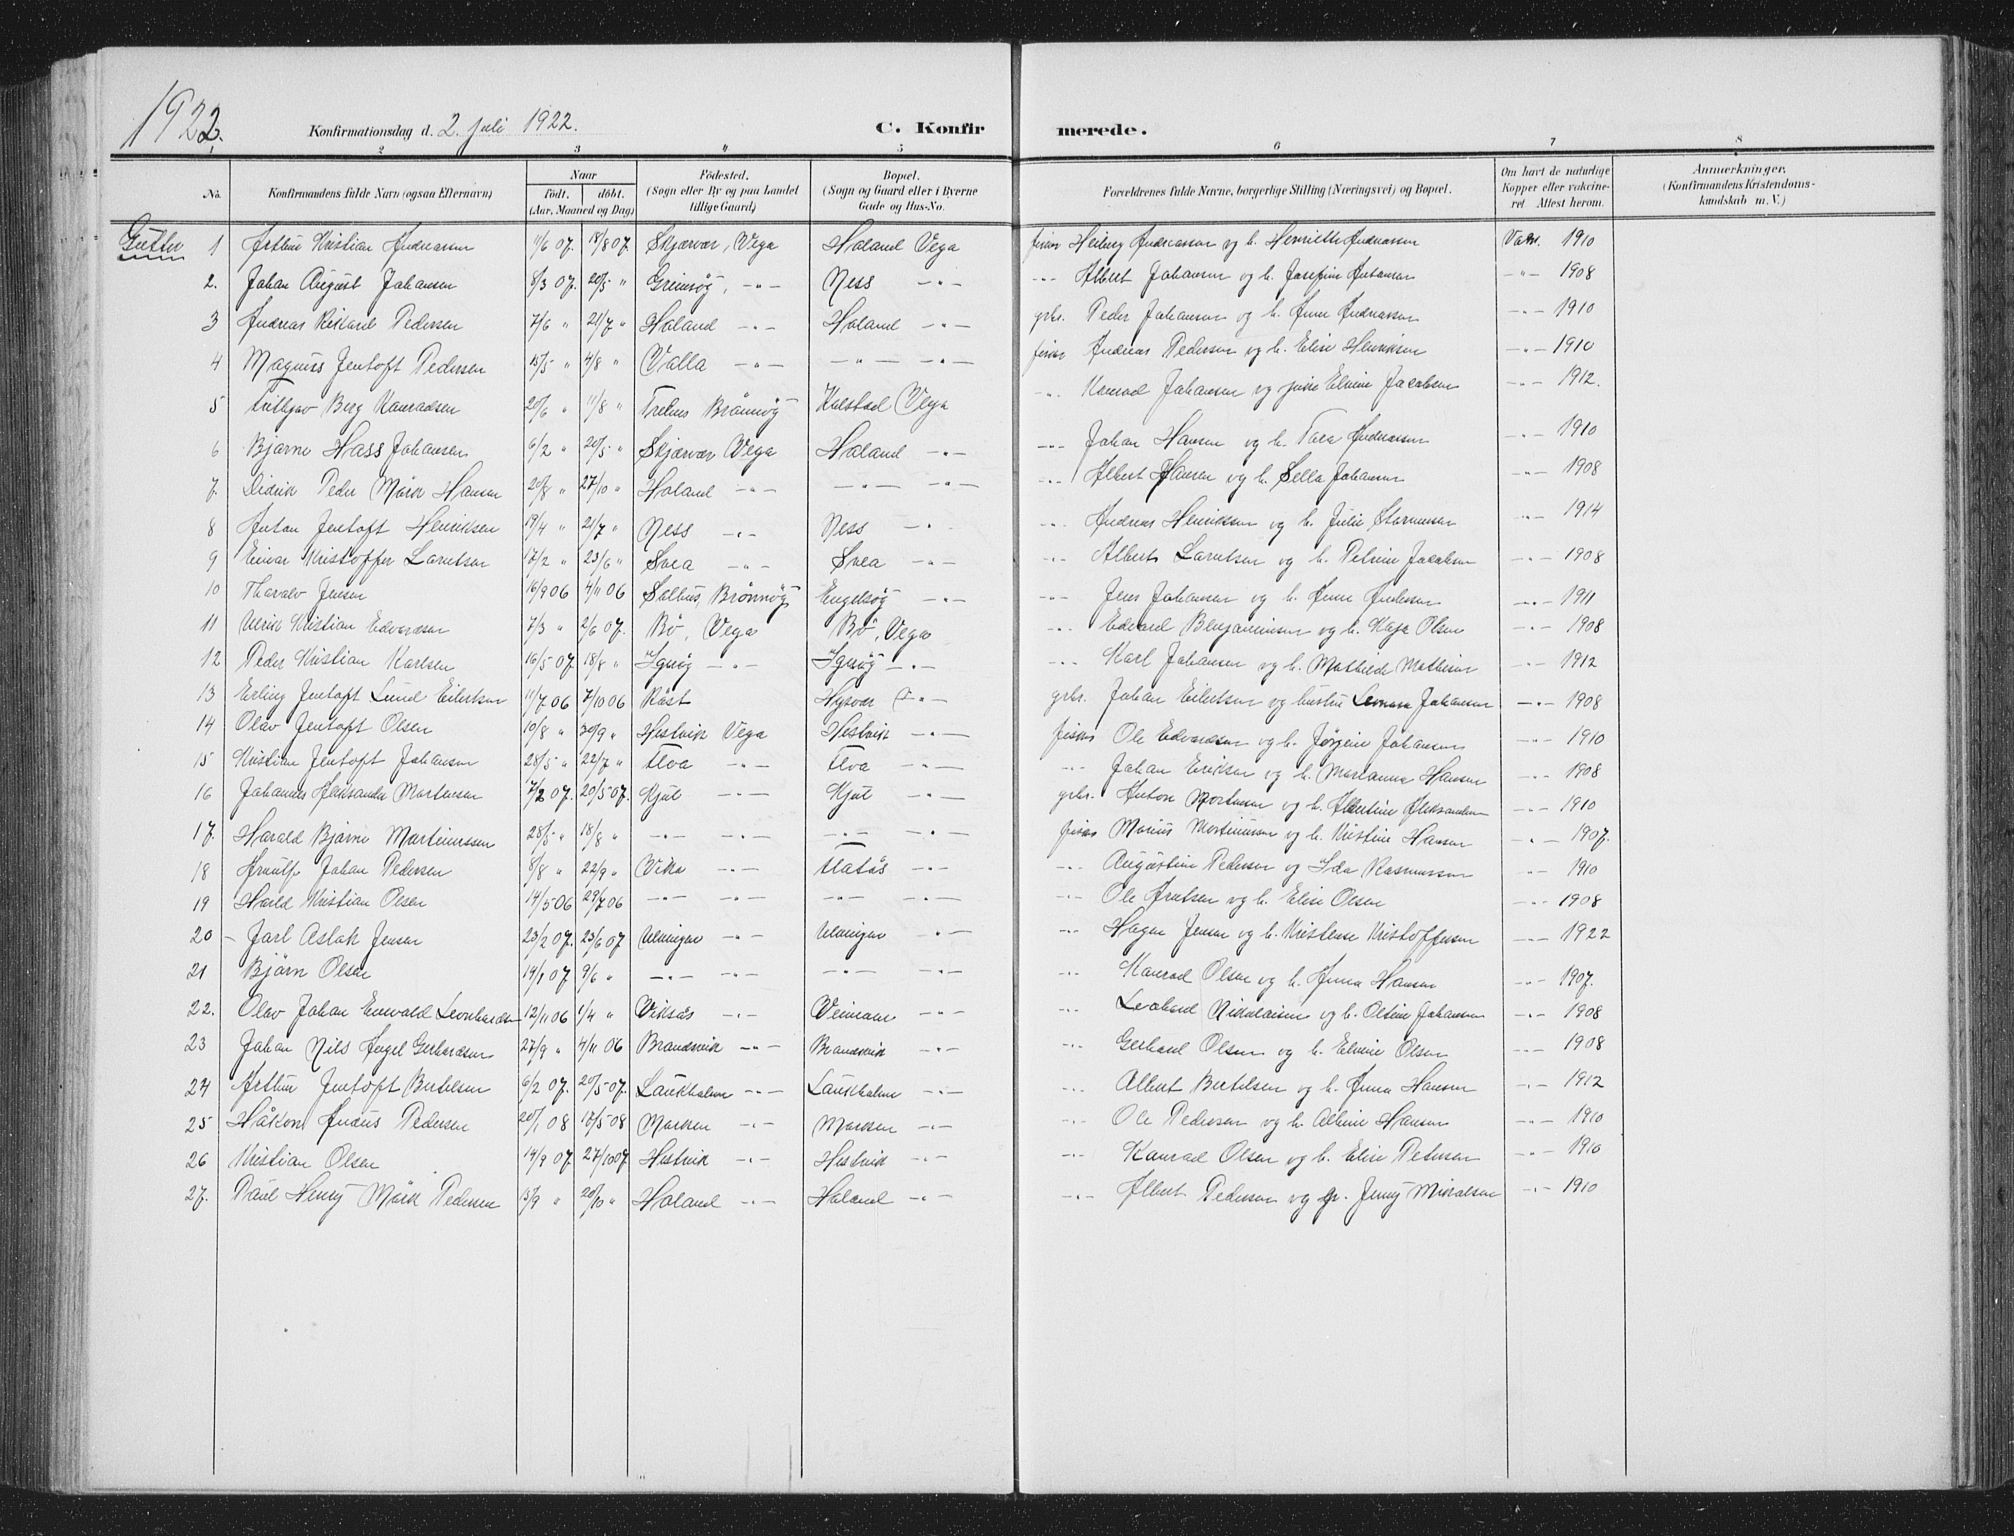 1922.
Konfirmationsdag d. 2. Juli 1922.
C. Konfir merede.
1 2 3 4 5 6 7 8
No. Konfirmandens fulde Navn (ogsaa Efternavn) Naar födt, döbt. (Aar, Maaned og Dag) Födested. (Sogn eller By og paa Landet tillige Gaard) Bopæl. (Sogn og Gaard eller i Byerne Gade og Hus-No. Forældrenes fulde Navne, borgerlige Stilling (Næringsvei) og Bopæl. Om havt de naturlige Kopper eller vakcineret Attest herom. Anmærkninger. (Konfirmandens Kristendomskundskab m. V.)
Gutter 1 Arthur Kristian Andreassen 4/6 07. 18/8 07 Skjærvær, Vega Holand Vega fisker Heiberg Andreassen og h. Henriette Andreassen Vakc. 1910
2. Johan August Johansen 8/3 07. 20/5 " Grimsøy, -"- Ness -"- -"- Albert Johansen og h. Josefine Antonsen -"- 1908
3 Andreas Rikard Pedersen 7/6 " 21/7 " Holand -"- Holand -"- grbr. Peder Johansen og h. Anne Andreassen -"- 1910
4 Magnus Jentoft Pedersen 15/5 " 4/8 " Valla -"- -"- -"- fisker Andreas Pedersen og h. Elise Henriksen -"- 1910
5 Frithjov Berg Konradsen 20/6 " 11/8 " Trelnes Brønnøy Kolstad Vega -"- Konrad Johansen og pike Elvine Jacobsen -"- 1912.
6 Bjarne Hass Johansen 6/2 " 20/5 " Skjærvær Vega Holand -"- -"- Johan Hansen og h. Tora Andreassen -"- 1910
7. Didrik Peder Mørk Hansen 20/8 " 27/10 " Holand -"- -"- -"- -"- Albert Hansen og h. Sella Johansen -"- 1908
8 Anton Jentoft Henriksen 19/4 " 21/7 " Ness -"- Ness -"- -"- Andreas Henriksen og h. Julie Stormensen -"- 1914
9 Einar Kristoffer Lorntsen 17/2 " 23/6 " Svea -"- Svea -"- -"- Albert Lorntsen og h. Petrine Jacobsen -"- 1908
10 Thoralv Jensen 16/9 06 4/11 06 Salhus, Brønnøy Engelsøy -"- -"- Jens Johansen og h. Anne Andersen -"- 1911
11 Ulrik Kristian Edvardsen 7/3 " 2/6 07. Bø, Vega Bø, Vega -"- Edvard Benjaminsen og h. Kaja Olsen -"- 1908
12 Peder Kristian Karlsen 16/5 07. 18/8 " Igerøy -"- Igerøy -"- -"- Karl Johansen og h. Mathilde Mathisen -"- 1912
13 Erling Jentoft Lund Eilertsen 11/7 06 7/10 06 Røst Hysvær -"- grbr. Johan Eilertsen og hustru Leonora Johansen -"- 1908
14 Olav Jentoft Olsen 10/8 " 30/9 " Hestvik Vega Hestvik -"- fisker Ole Edvardsen og h. Jørgine Johansen -"- 1910
15 Kristian Jentoft Johansen 28/5 " 22/7 " Flova -"- Flova -"- -"- Johan Eriksen og h. Marianna Hansen -"- 1908
16 Johannes Aleksander Mortensen 7/2 07. 20/5 07. Kjul -"- Kjul -"- grbr. Anton Mortensen og h. Albertine Aleksandersen -"- 1910
17. Harald Bjarne Martinussen 28/5 " 18/8 " -"- -"- -"- -"- fisker Marius Martinussen og h. Kristine Hansen -"- 1907.
18 Arnulf Johan Pedersen 8/8 " 22/9 " Vika -"- Flatøs -"- -"- Augustin Pedersen og Ida Rasmussen -"- 1910
19 Harld Kristian Olsen 14/5 06 29/7 06 -"- -"- -"- -"- -"- Ole Arntsen og h. Elise Olsen -"- 1908
20 - Jarl Aslak Jensen 23/2 07. 23/6 07 Ulvingen -"- Ulvingen -"- -"- Hagen Jensen og h. Kristense Kristoffersen -"- 1922
21 Bjørn Olsen 19/1 07 9/6 " -"- -"- -"- -"- -"- Konrad Olsen og h. Anna Hansen -"- 1907.
22. Olav Johan Enevald Leonhardsen 12/11 06 1/4 " Viksås -"- Veimoen -"- -"- Leohard Nikolaisen og h. Oline Johansen -"- 1908
23 Johan Nils Angel Gerhardsen 27/9 " 4/11 06 Brandsvik -"- Brandsvik -"- -"- Gerhard Olsen og h. Elvine Olsen -"- 1908
24 Arthur Jentoft Bertelsen 6/2 07. 20/5 07. Laukholmen -"- Laukholmen -"- -"- Albert Bertelsen og h. Anna Hansen -"- 1912
25 Håkon Andeus Pedersen 20/1 08 10/5 08 Marksen -"- Marksen -"- -"- Ole Pedersen og h. Albine Hansen -"- 1910
26 Kristian Olsen 14/9 07. 27/10 07. Hestvik -"- Hestvik -"- -"- Konrad Olsen og h. Elise Petersen -"- 1910
27. Paul Henry Mørk Pedersen 13/9 " 20/10 " Holand -"- Holand -"- -"- Albert Pedersen og p. Jenny Mikalsen -"- 1910